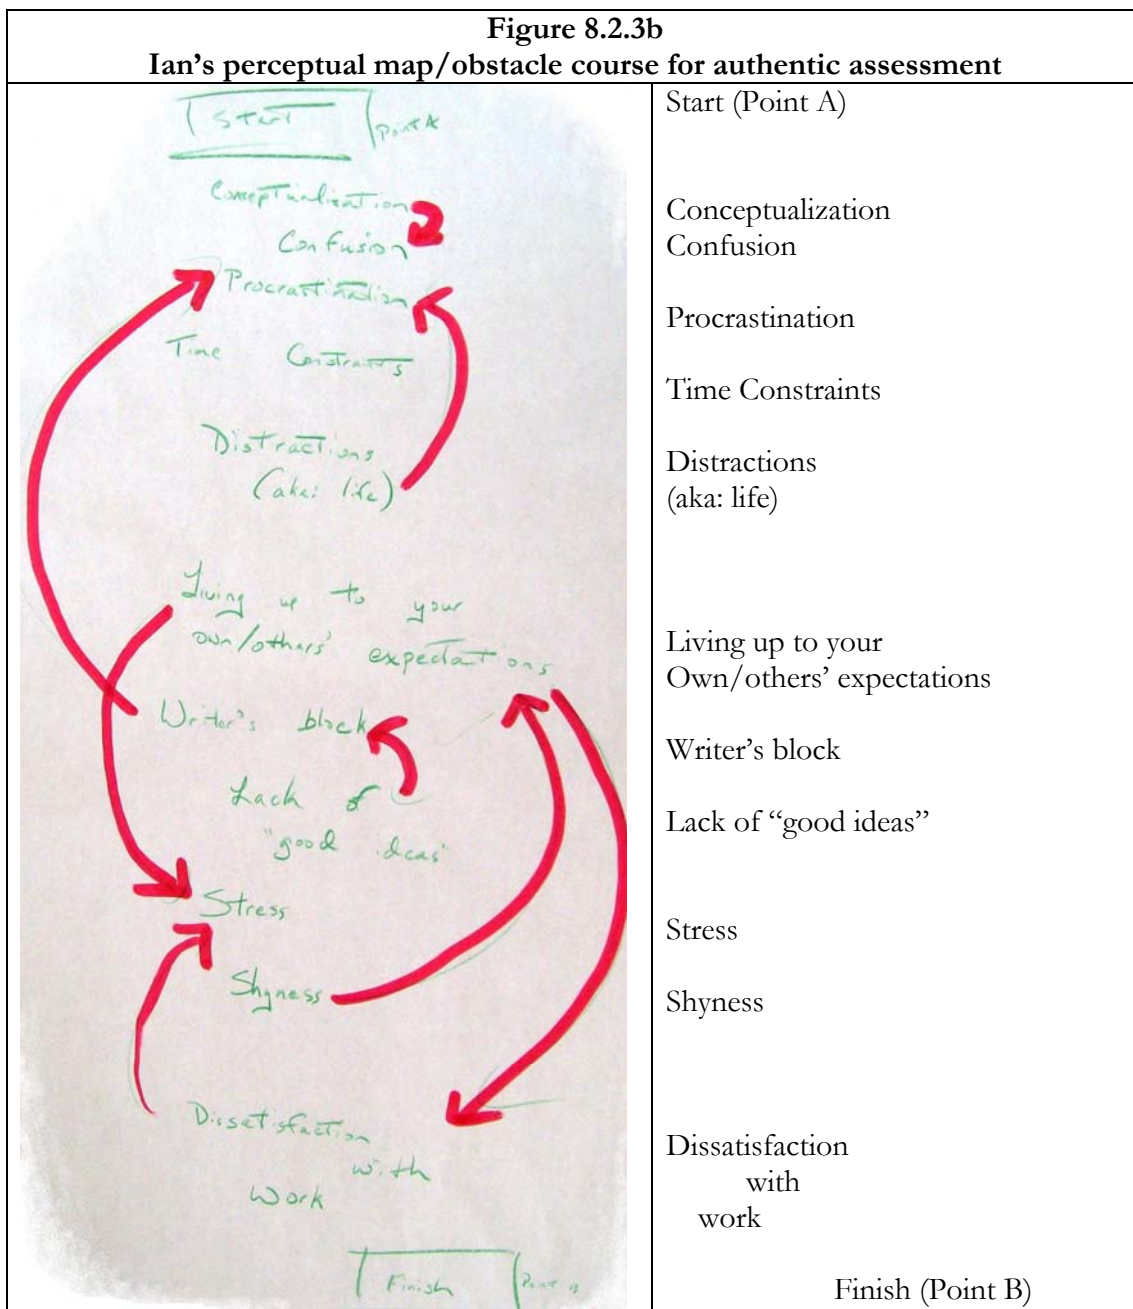 Figure 8.2.3b
Ian's perceptual map/obstacle course for authentic assessment
Start
Point A
Conceptualization
Confusion
Procrastination
Time Constraints
Distractions
(aka: life)
Living up to your
own/others' expectations
Writer's block
Lack of
"good ideas"
Stress
Shyness
Dissatisfaction
with
Work
Finish
Point B
Start (Point A)
Conceptualization
Confusion
Procrastination
Time Constraints
Distractions
(aka: life)
Living up to your
Own/others' expectations
Writer's block
Lack of "good ideas"
Stress
Shyness
Dissatisfaction
with
work
Finish (Point B)